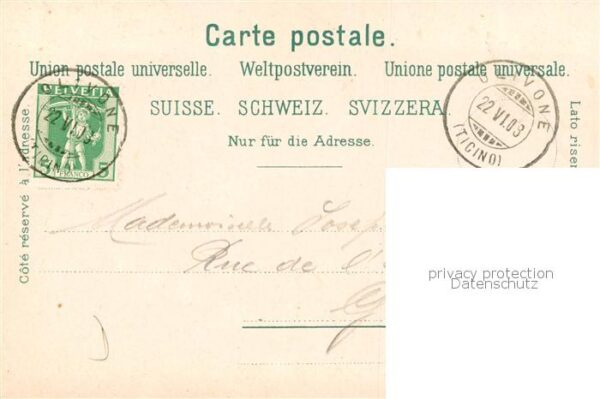 Carte postale.
Union postale universelle. Weltpostverein. Unione postale universale.
SUISSE. SCHWEIZ. SVIZZERA.
Nur für die Adresse.
Côté réservé à l'adresse.
Lato riser
HELVETIA
FRANCO
5
OLIVONE
22.VI.03
(TICINO)
OLIVONE
22.VI.03
(TICINO)
Mademoiselle
Rue de l'
privacy protection
Datenschutz